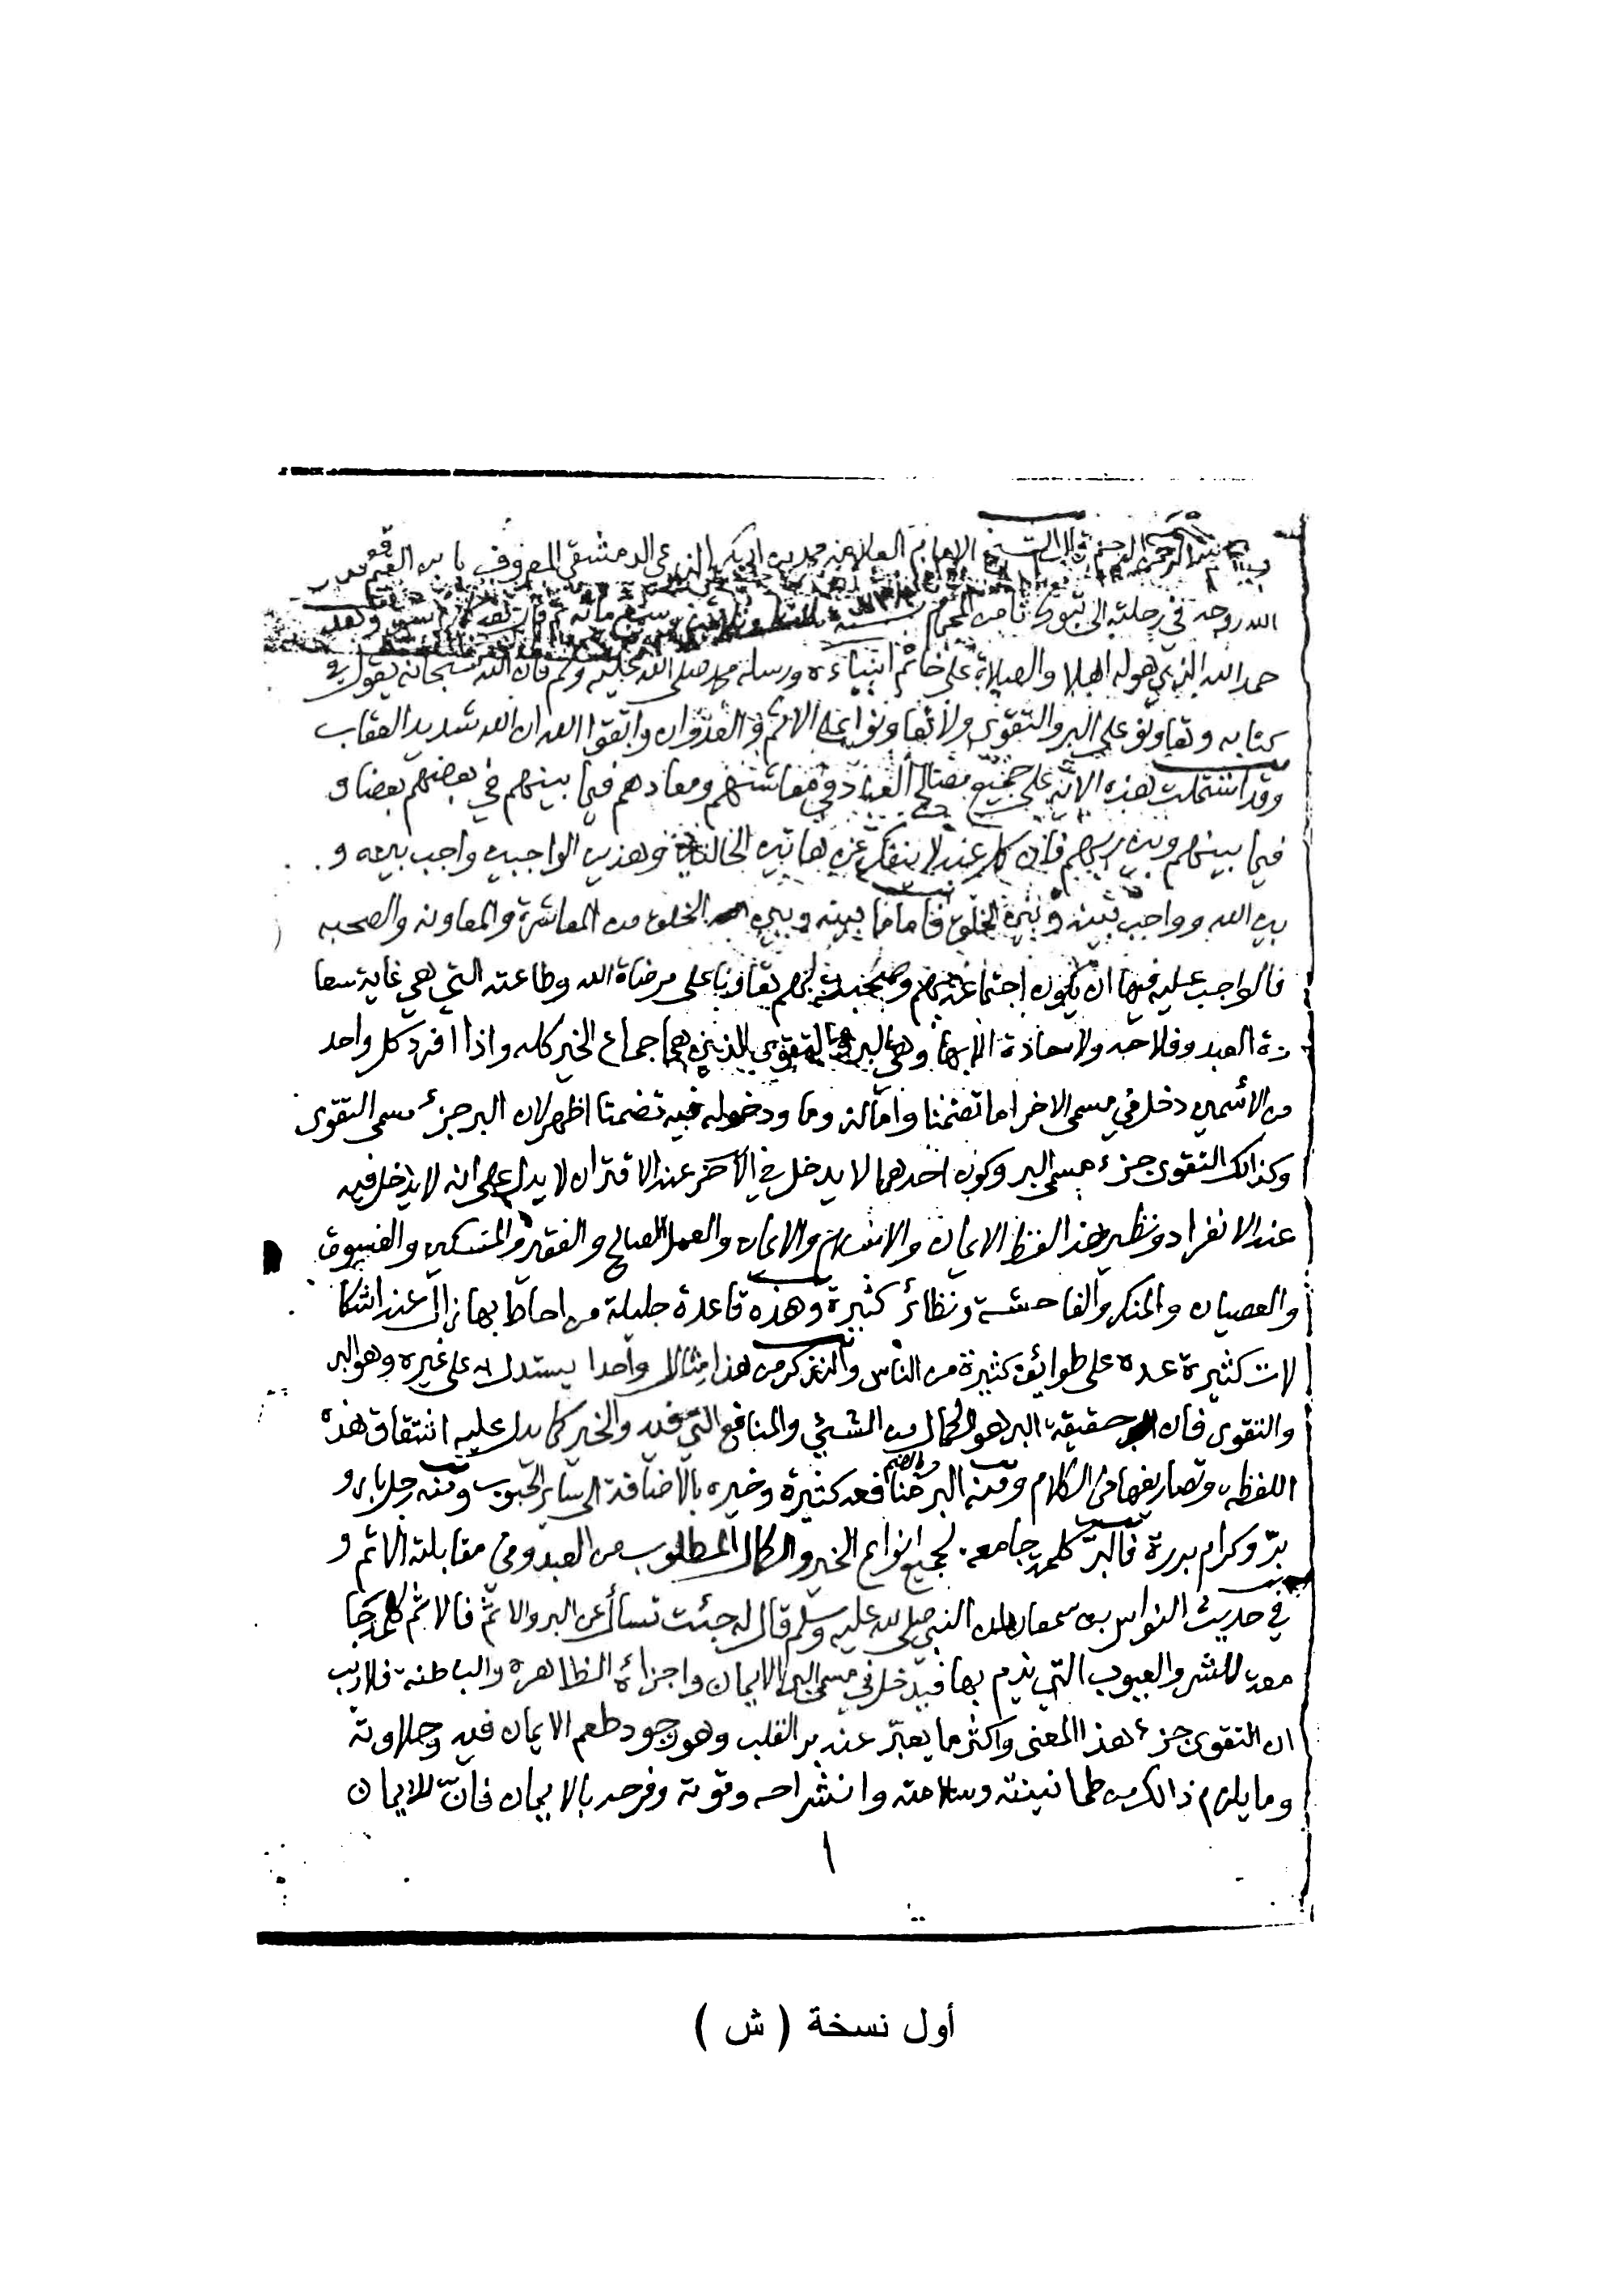 بسم الله الرحمن الرحيم قال الشيخ الامام العلامة محمد بن ابي بكر الزرعي الدمشقي المعروف بابن القيم
الله روحه في رحلته الى تبوك ثامن المحرم سنة وسبعمائة
حمد الله الذي هو له اهلا والصلاة على خاتم انبياءه ورسله محمد صلى الله عليه وسلم فان الله سبحانه يقول في
كتابه وتعاونو على البر والتقوى ولا تعاونوا على الاثم والعدوان واتقوا الله ان الله شديد العقاب
وقد اشتملت هذه الاية على جميع مصالح العباد في معاشهم ومعادهم فيما بينهم في بعضهم بعضا و
فيما بينهم وبين ربهم فان كل عبد لا ينفك عن هاتين الحالتين وهذين الواجبين واجب بينه و
بين الله وواجب بينه وبين الخلق فاما ما بينه وبين الخلق من المعاشرة والمعاونه والصحبه
فالواجب عليه فيها ان يكون اجتماعه بهم وصحبته لهم تعاونا على مرضاة الله وطاعته التي هي غاية سعا
دة العبد وفلاحه ولا سعادة الا بها وهي البر والتقوى اللذين هما جماع الخير كله واذا افرد كل واحد
من الأسمين دخل في مسمى الاخر اما تضمنا واما لزوما ودخوله فيه تضمنا اظهر لان البر جزء مسمى التقوى
وكذالك التقوى جزء مسمى البر وكون احدهما لا يدخل في الآخر عند الاقتران لا يدل على انه لا يدخل فيه
عند الانفراد ونظير هذا لفظ الايمان والاسلام والايمان والعمل الصالح والفقير والمسكين والفسوق
والعصيان والمنكر والفاحشة ونظائر كثيرة وهذه قاعدة جليلة من احاط بها زال عند اشكا
لات كثيرة عده على طوائف كثيرة من الناس ولنذكر من هذا مثالا واحدا يستدل به على غيره وهو البر
والتقوى فان حقيقة البر هو الكمال من الشيئ والمنافع التي فيه والخير كما يدل عليه اشتقاق هذه
اللفظه وتصاريفها في الكلام ومنه البر بالضم منافعه كثيرة وخيره بالأضافة الى سائر الحبوب ومنه رجل بار و
برّ وكرام بررة فالبرّ كلمة جامعه لجميع انواع الخير والكمال المطلوب من العبد وفي مقابلته الاثم و
في حديث النواس بن سمعان ان النبي صلى الله عليه وسلم قال له جئت تسأل عن البر والاثم فالاثم كلمة جا
معة للشر والعيوب التي يذم بها فيدخل في مسمى البر الايمان واجزائه الظاهرة والباطنة فلا ريب
ان التقوى جزء هذا المعنى واكثر ما يعبّر عند بر القلب وهو وجود طعم الايمان فيه وحلاوته
وما يلزم ذالك من طمانينته وسلامته وانشراحه وقوته وفرحه بالايمان فانّ للايمان
١
أول نسخة ( ش )